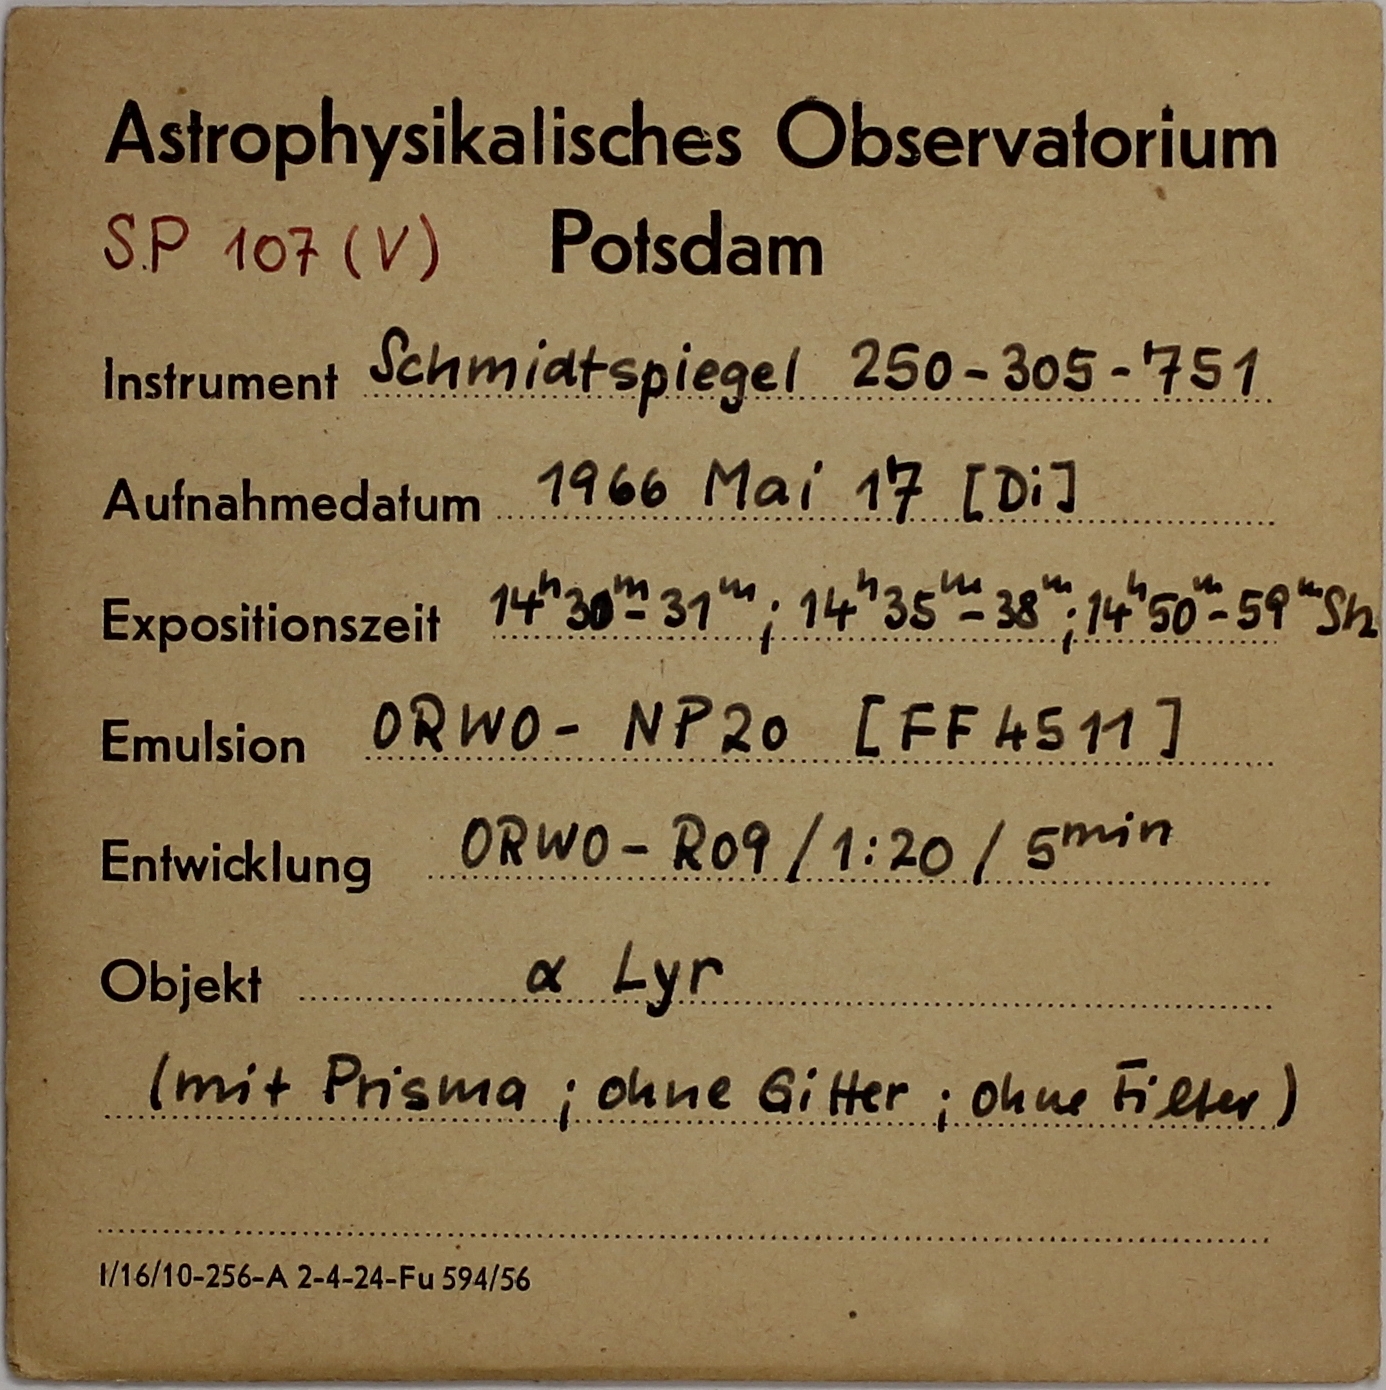 Astrophysikalisches Observatorium
S.P 107 (V) Potsdam
Instrument Schmidtspiegel 250-305-751
Aufnahmedatum 1966 Mai 17 [Di]
Expositionszeit 14ʰ30ᵐ-31ᵐ; 14ʰ35ᵐ-38ᵐ; 14ʰ50ᵐ-59ᵐ Stz
Emulsion ORWO- NP20 [FF 4511]
Entwicklung ORWO-R09/1:20/5ᵐⁱⁿ
Objekt α Lyr
(mit Prisma; ohne Gitter; ohne Filter)
I/16/10-256-A 2-4-24-Fu 594/56